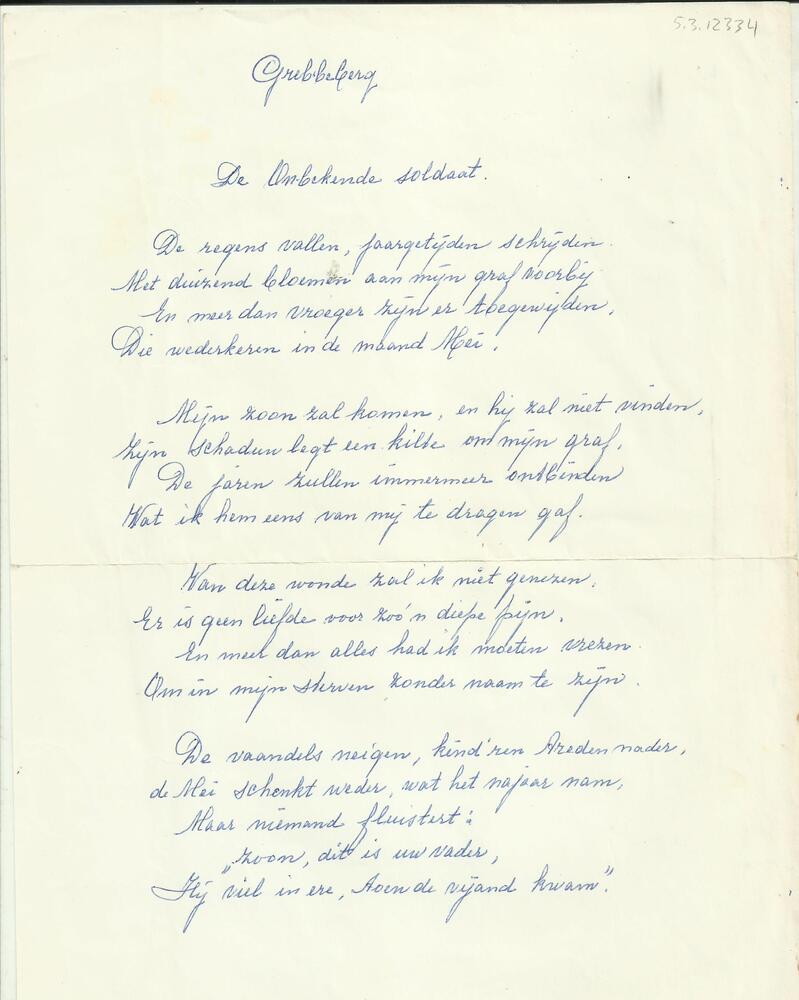 5.3.12334
Grebbeberg
De Onbekende soldaat.
De regens vallen, jaargetijden schrijden.
Met duizend bloemen aan mijn graf voorbij
En meer dan vroeger zijn er toegewijden,
Die wederkeren in de maand Mei.
Mijn zoon zal komen, en hij zal niet vinden,
Zijn schaduw legt een kilte om mijn graf.
De jaren zullen immermeer ontbinden
Wat ik hem eens van mij te dragen gaf.
Van deze wonde zal ik niet genezen,
Er is geen liefde voor zoo'n diepe pijn.
En meer dan alles had ik moeten vrezen.
Om in mijn sterven zonder naam te zijn.
De vaandels neigen, kind'ren treden nader,
de Mei schenkt weder, wat het najaar nam,
Maar niemand fluistert:
„Zoon, dit is uw vader,
Hij viel in ere, toen de vijand kwam".